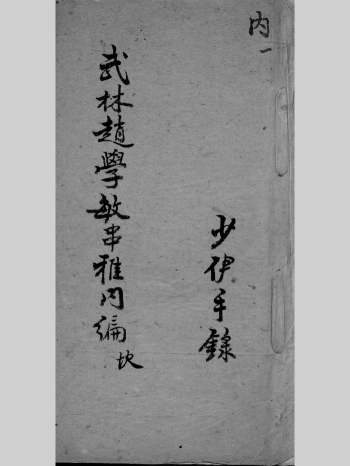 内一
少伊手錄
武林趙學敏串雅內編 坎